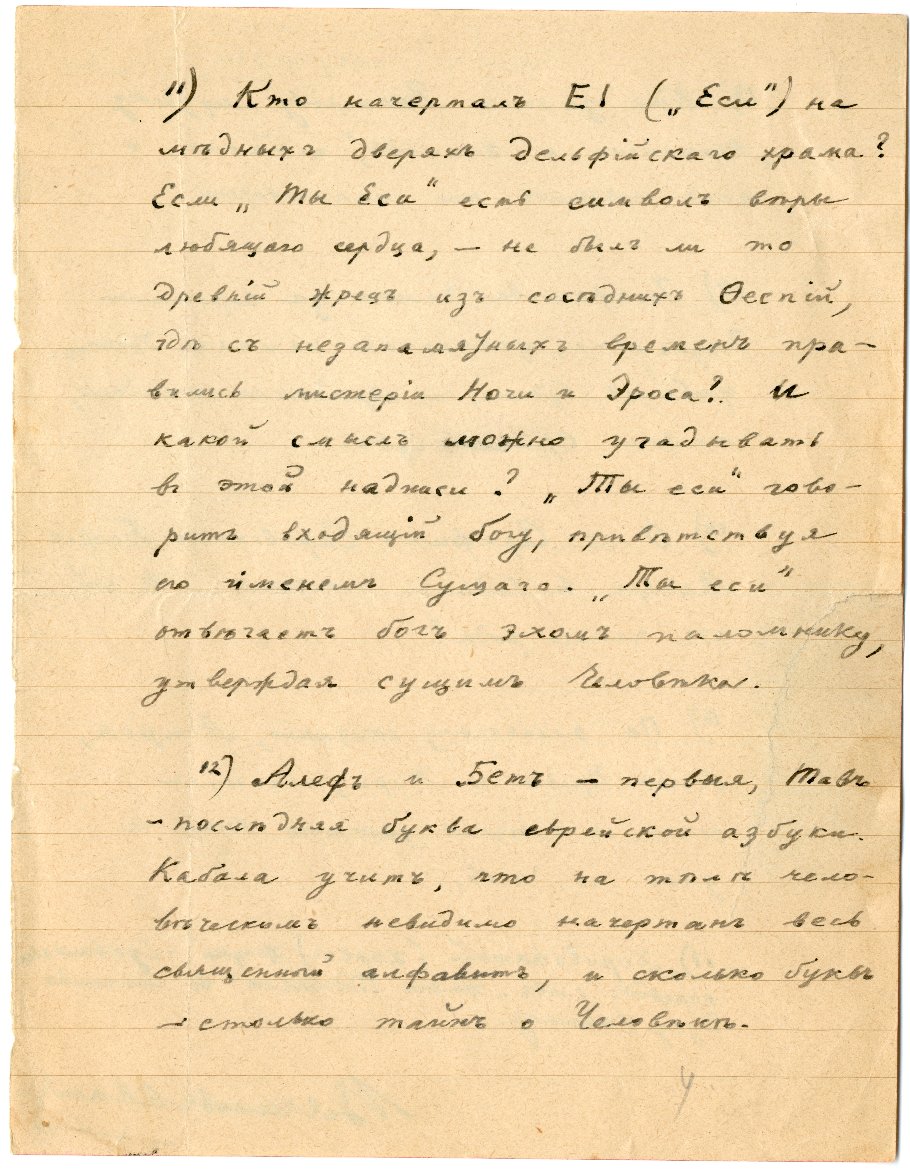 11) Кто начерталъ ЕI („Еси“) на
мѣдныхъ дверяхъ Дельфійскаго храма?
Если „Ты Еси“ есть символъ вѣры
любящаго сердца, – не былъ ли то
древній жрецъ изъ сосѣднихъ Ѳеспій,
гдѣ съ незапамятныхъ временъ пра-
вились мистеріи Ночи и Эроса? И
какой смыслъ можно угадывать
въ этой надписи? „Ты еси“ гово-
ритъ входящій богу, привѣтствуя
его именемъ Сущаго. „Ты еси“
отвѣчаетъ богъ эхомъ паломнику,
утверждая сущимъ Человѣка.
12) Алефъ и Бетъ – первыя, Тавъ
– послѣдняя буква еврейской азбуки.
Кабала учитъ, что на тѣлѣ чело-
вѣческомъ невидимо начертанъ весь
священный алфавитъ, и сколько буквъ
– столько тайнъ о Человѣкѣ.
4